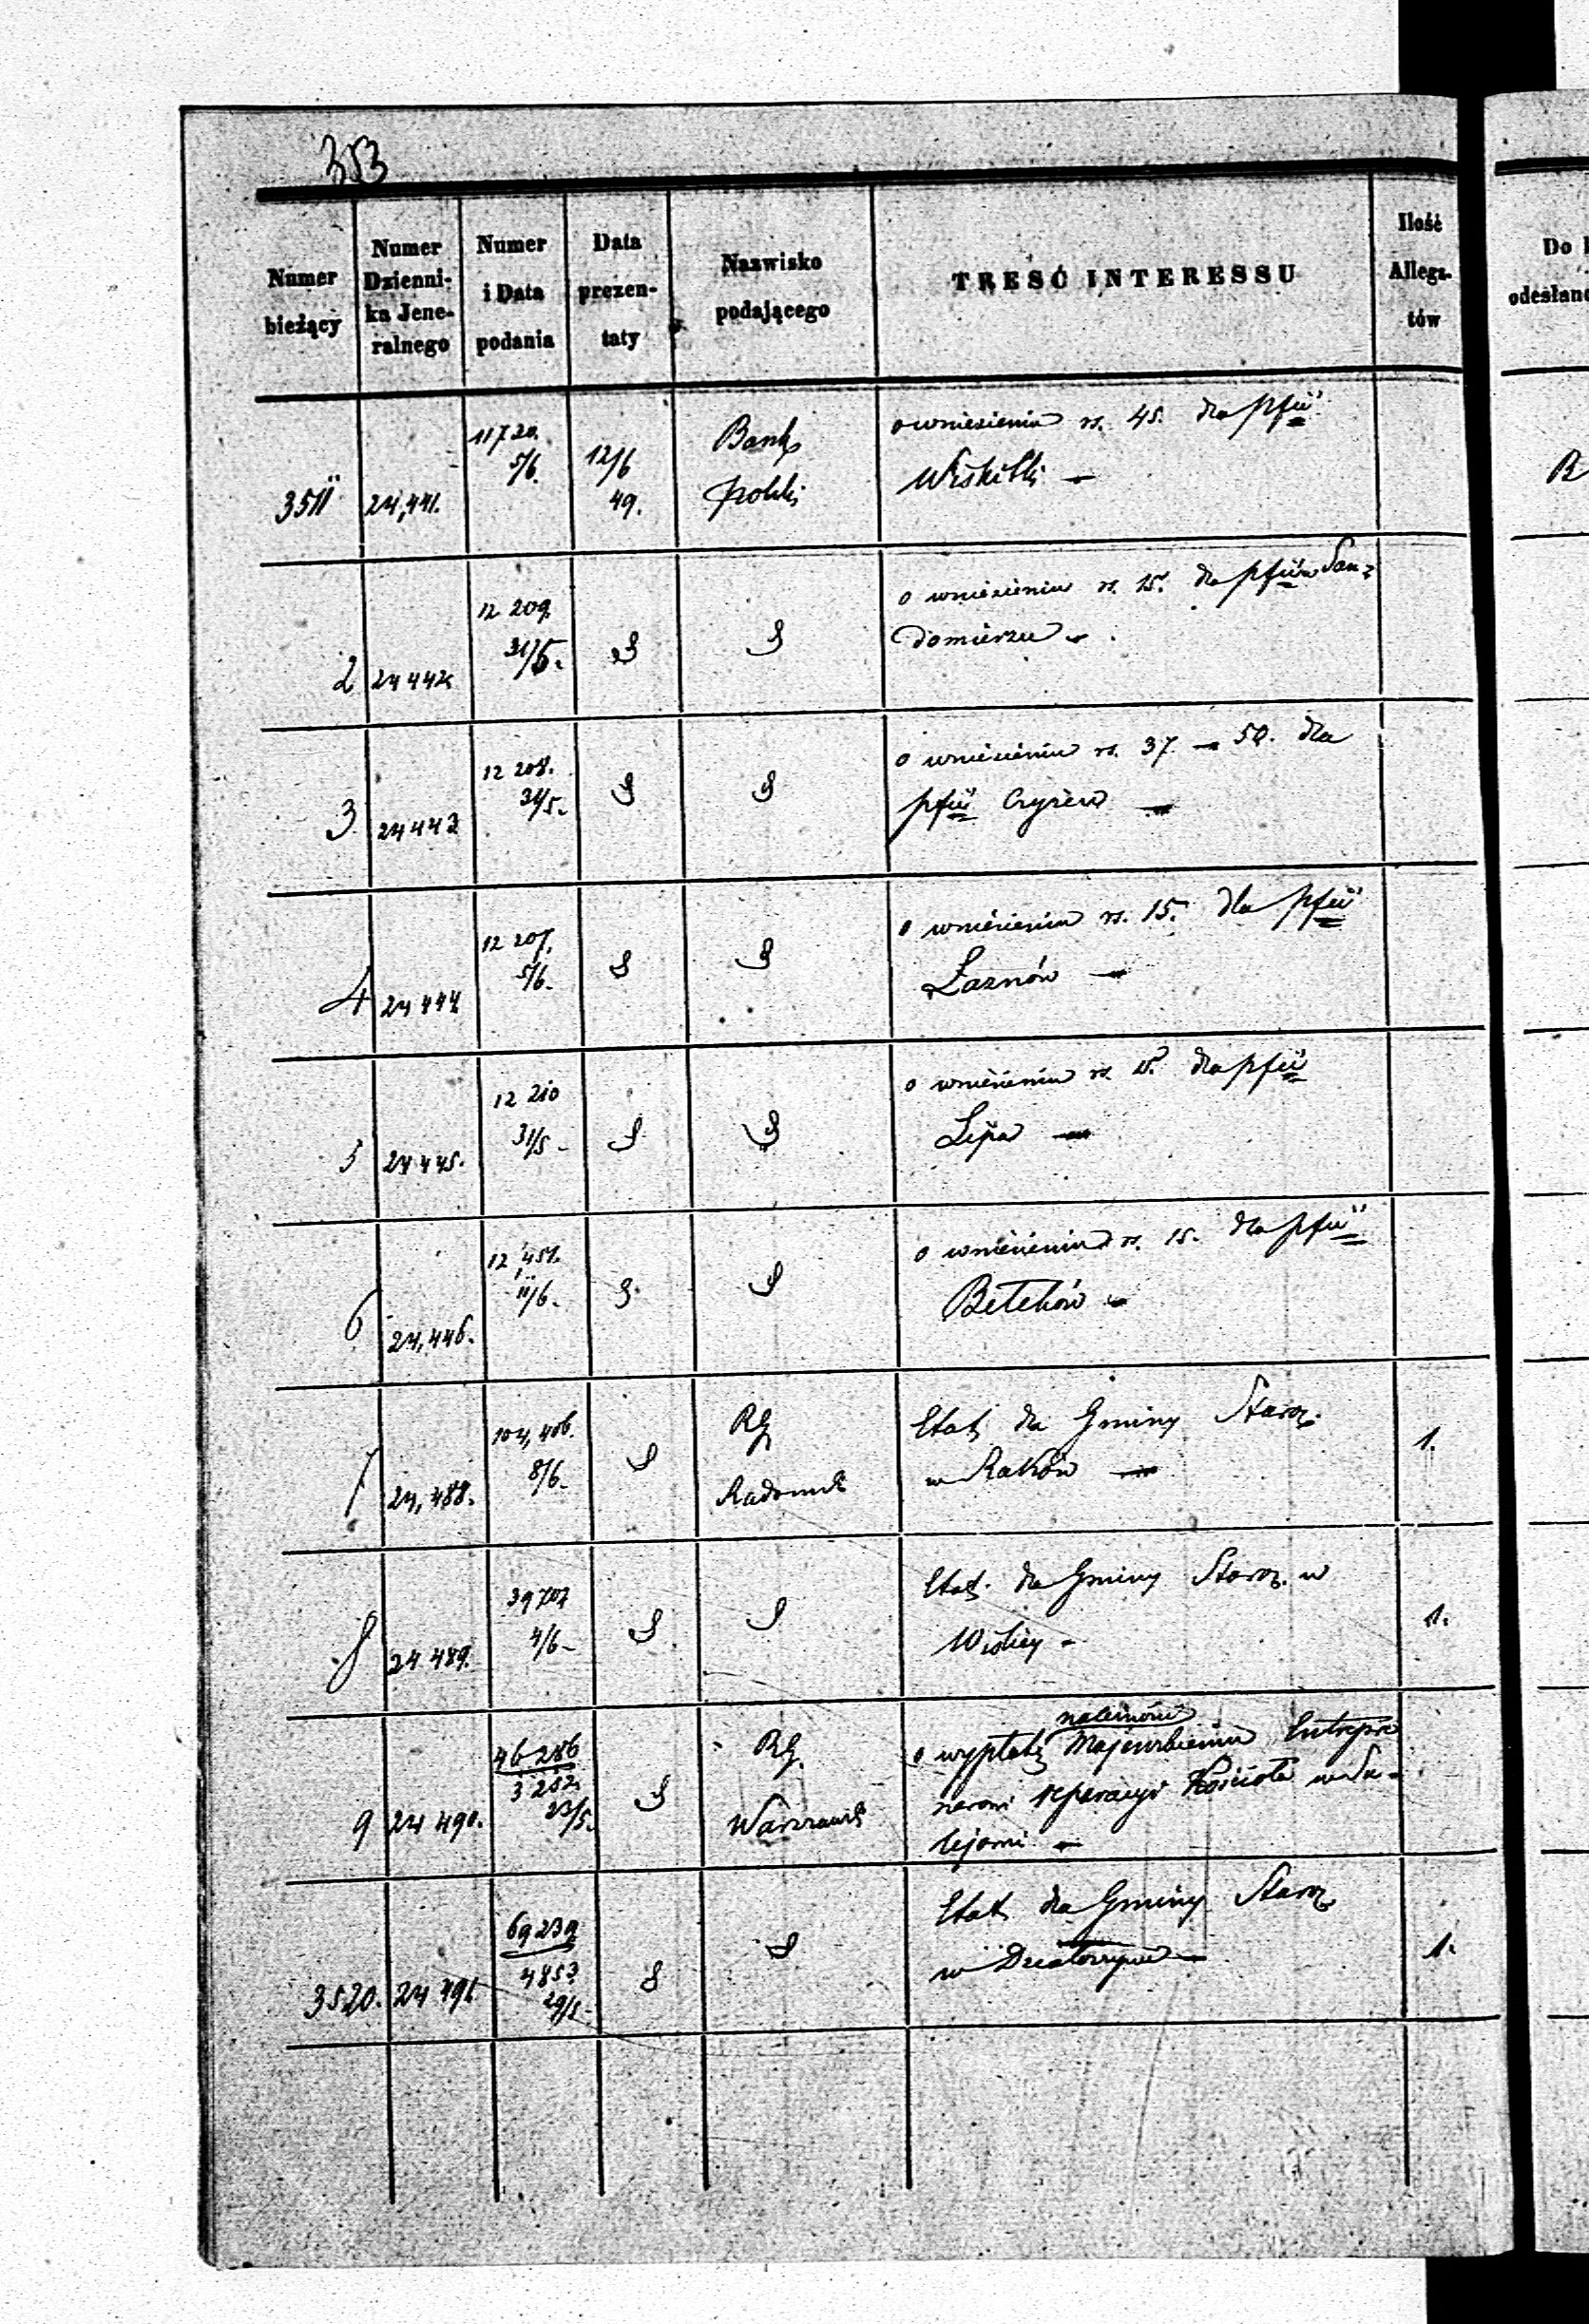 353
Numer bieżący
Numer Dzienni- ka Jene- ralnego
Numer i Data podania
Data prezen- taty
Nazwisko podającego
TRESĆ INTERESSU
Ilość Allega- tów
Do
odesłano
3511 24,441. 11720. 5/6. 12/6 49. Bank Polski
o wniesieniu rs. 45. dla pfii
Wiskitki —
B
2 24442 12 209. 31/5. S S
o wniesieniu rs. 15. dla pfii w San-
domierzu —
3 24443 12 208. 31/5. S S
o wniesieniu rs. 37 — 50. dla
pfii Czyżew —
4 24444 12 207. 5/6. S S
o wniesieniu rs. 15. dla pfii
Łaznów —
5 24445. 12 210 31/5 - S S
o wniesieniu rs. 15. dla pfii
Lipa —
6 24,446. 12,451. 11/6. S S
o wniesieniu rs. 15. dla pfii
7 24,488. 104,406. 8/6- S RG Radomsk
Etat dla Gminy Staroz.
w Raków —
1.
8 24 489. 39707 4/6 - S S
Etat dla Gminy Staroz. w
Wiślicy -
1.
9 24 490. 46286 3252 23/5. S RG. Warszawsk
należności
o wypłatę Majewskiemu Entrepre
nerowi reperacyi Kościoła w Su-
lejowie —
3520. 24 491. 69239 4853 29/5 - S S
Etat dla Gminy Staroz.
w Działoszynie —
1.